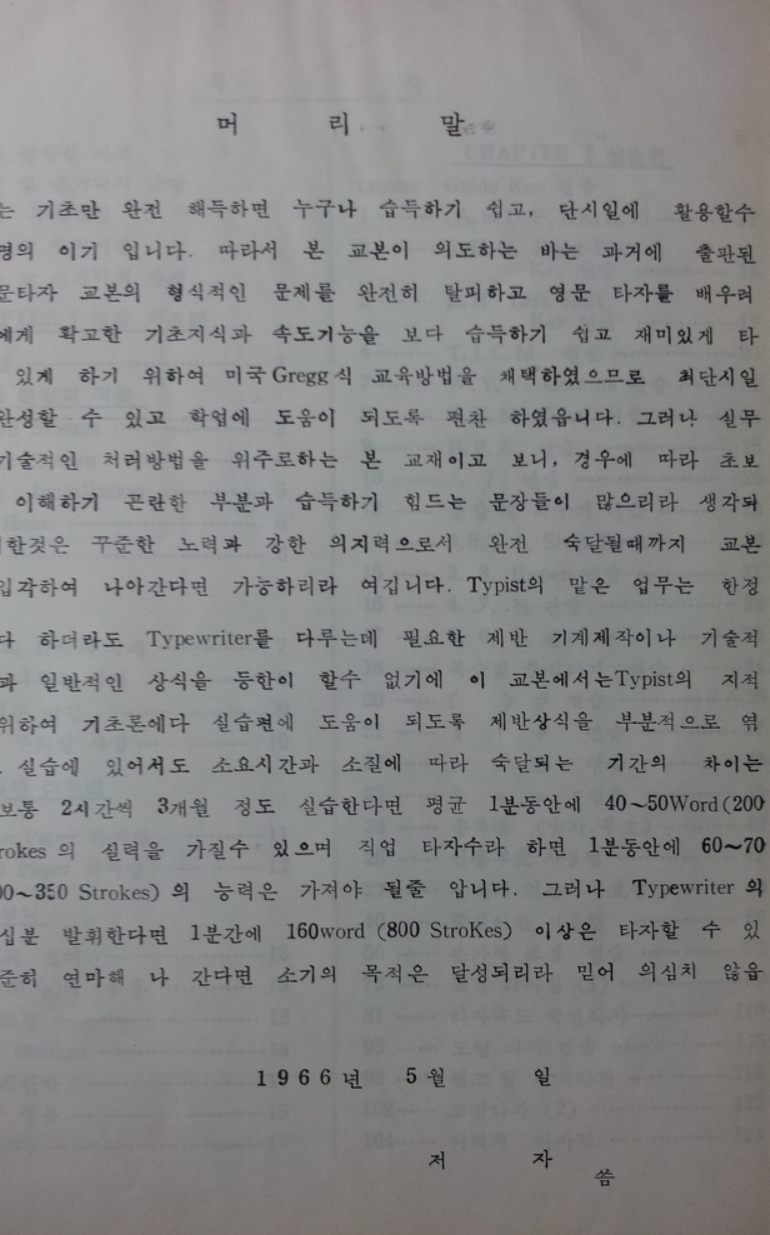 머 리 말
는 기초만 완전 해득하면 누구나 습득하기 쉽고, 단시일에 활용할수
명의 이기 입니다. 따라서 본 교본이 의도하는 바는 과거에 출판된
문타자 교본의 형식적인 문제를 완전히 탈피하고 영문 타자를 배우려
에게 확고한 기초지식과 속도기능을 보다 습득하기 쉽고 재미있게 타
있게 하기 위하여 미국 Gregg식 교육방법을 채택하였으므로 최단시일
완성할 수 있고 학업에 도움이 되도록 편찬 하였읍니다. 그러나 실무
기술적인 처러방법을 위주로하는 본 교재이고 보니, 경우에 따라 초보
이해하기 곤란한 부분과 습득하기 힘드는 문장들이 많으리라 생각되
한것은 꾸준한 노력과 강한 의지력으로서 완전 숙달될때까지 교본
입각하여 나아간다면 가능하리라 여깁니다. Typist의 맡은 업무는 한정
다 하더라도 Typewriter를 다루는데 필요한 제반 기계제작이나 기술적
과 일반적인 상식을 등한이 할수 없기에 이 교본에서는Typist의 지적
위하여 기초론에다 실습편에 도움이 되도록 제반상식을 부분적으로 엮
실습에 있어서도 소요시간과 소질에 따라 숙달되는 기간의 차이는
보통 2시간씩 3개월 정도 실습한다면 평균 1분동안에 40~50Word(200
rokes의 실력을 가질수 있으며 직업 타자수라 하면 1분동안에 60~70
00~350 Strokes)의 능력은 가져야 될줄 압니다. 그러나 Typewriter의
십분 발휘한다면 1분간에 160word (800 StroKes) 이상은 타자할 수 있
준히 연마해 나 간다면 소기의 목적은 달성되리라 믿어 의심치 않읍
1966년 5월 일
저 자 씀